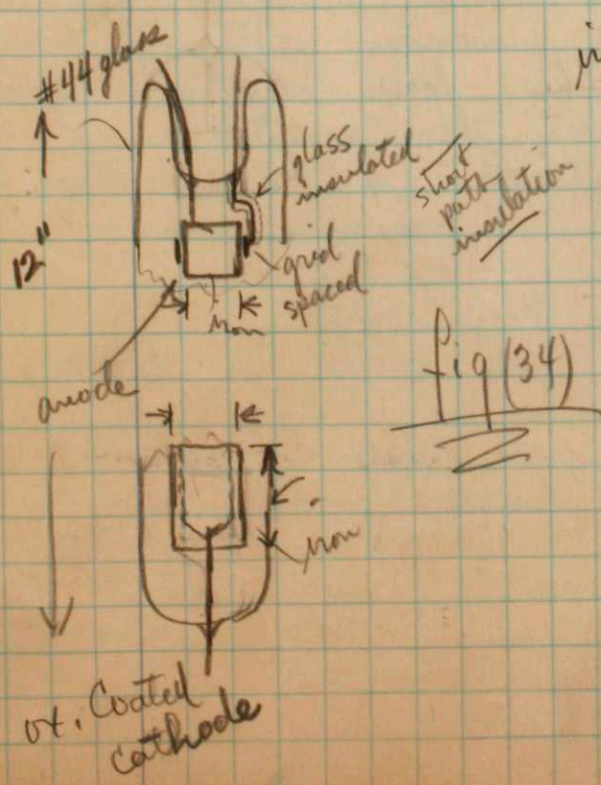 #44 glass
glass
insulated
short
path
insulation
12"
grid
spaced
iron
anode
fig (34)
iron
ox. Coated
cathode